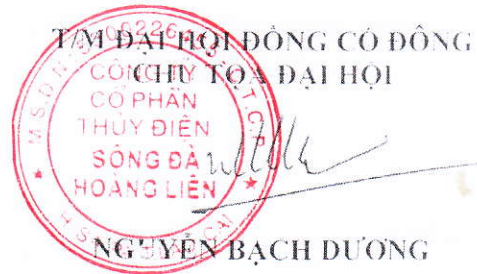 T/M ĐẠI HỘI ĐỒNG CỔ ĐÔNG
CHỦ TỌA ĐẠI HỘI
CÔNG TY
CỔ PHẦN
THỦY ĐIỆN
SÔNG ĐÀ
HOÀNG LIÊN
NGUYỄN BẠCH DƯƠNG